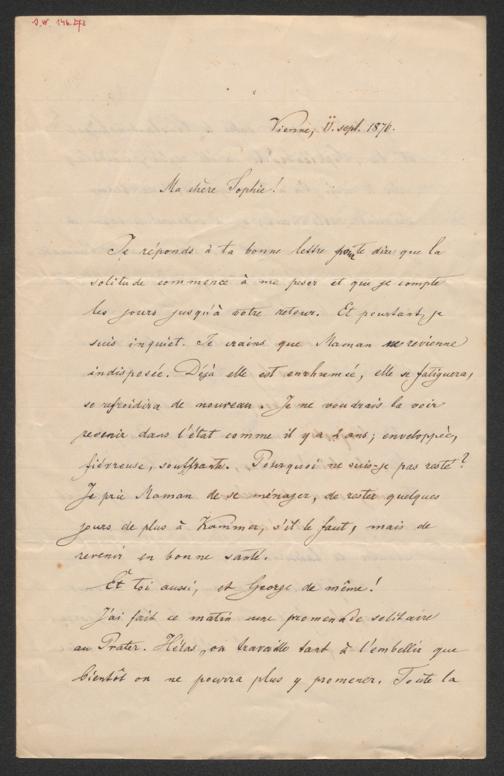 Vienne, sept. 1876.
Ma chère Sophie!
Je réponds à ta bonne lettre pour te dire que la
solitude commence à me peser et que je compte
les jours jusqu'à votre retour. Et pourtant, je
suis inquiet. Je crains que Maman ne revienne
indisposée. Déjà elle est enrhumée, elle se fatiguera,
se refroidira de nouveau. Je ne voudrais la voir
revenir dans l'état comme il y a 2 ans; enveloppée,
fiévreuse, souffrante. Pourquoi ne suis-je pas resté?
Je prie Maman de se ménager, de rester quelques
jours de plus à Kammer, s'il le faut, mais de
revenir en bonne santé.
Et toi aussi, et George de même!
J'ai fait ce matin une promenade solitaire
au Prater. Hélas, on travaille tant à l'embellir que
bientôt on ne pourra plus y promener. Toute la